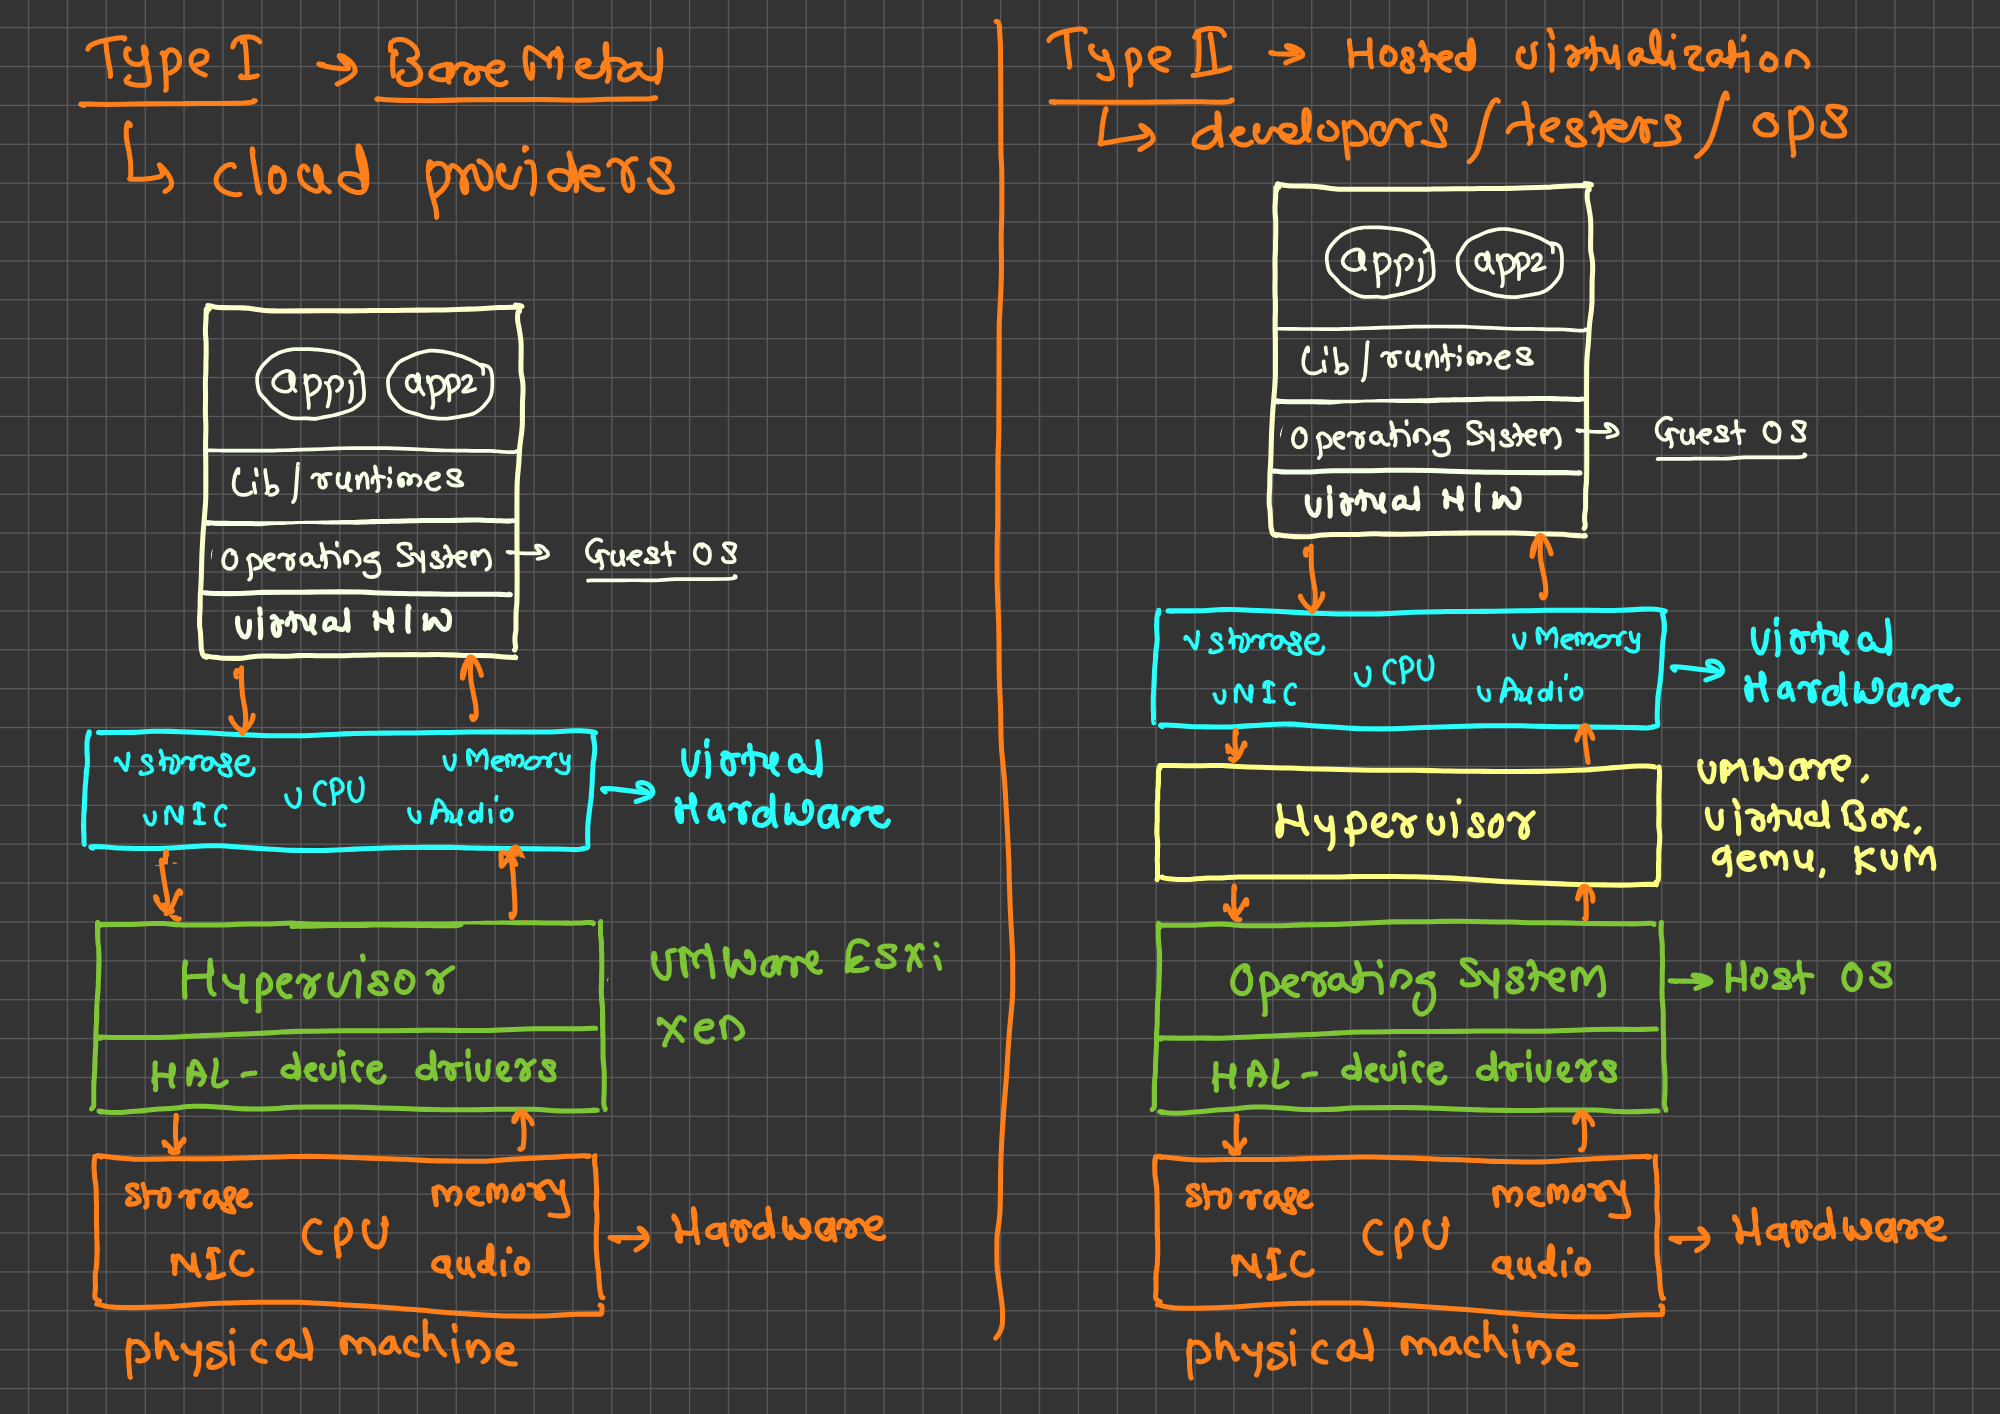 Type I → Bare Metal
↳ cloud providers
app1 app2
Lib / runtimes
Operating System → Guest OS
virtual H/W
vstorage vCPU vMemory
vNIC vAudio
→ Virtual Hardware
Hypervisor
VMWare ESXi
Xen
HAL - device drivers
storage CPU memory
NIC audio
→ Hardware
physical machine
Type II → Hosted virtualization
↳ developers / testers / ops
app1 app2
Lib / runtimes
Operating System → Guest OS
virtual H/W
vstorage vCPU vMemory
vNIC vAudio
→ Virtual Hardware
Hypervisor
VMWare,
VirtualBox,
qemu, KVM
Operating System → Host OS
HAL - device drivers
storage CPU memory
NIC audio
→ Hardware
physical machine